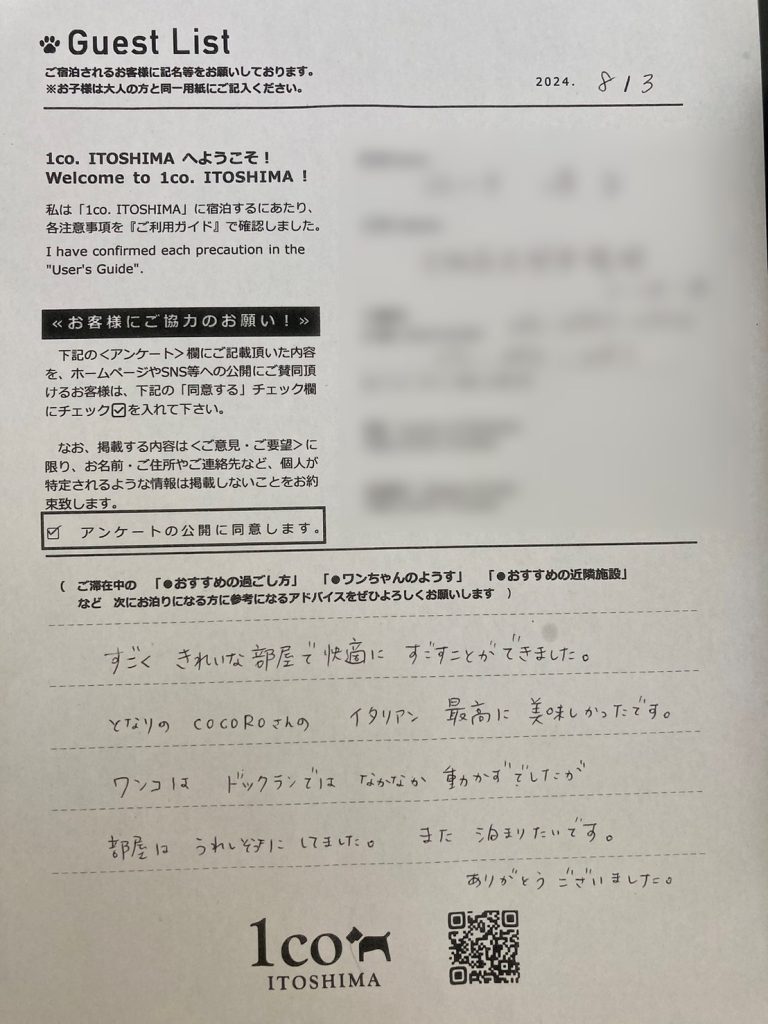 Guest List
ご宿泊されるお客様に記名等をお願いしております。
※お子様は大人の方と同一用紙にご記入ください。
2024. 8 13
1co. ITOSHIMA へようこそ！
Welcome to 1co. ITOSHIMA !
私は「1co. ITOSHIMA」に宿泊するにあたり、
各注意事項を『ご利用ガイド』で確認しました。
I have confirmed each precaution in the
"User's Guide".
≪お客様にご協力のお願い！≫
下記の<アンケート>欄にご記載頂いた内容
を、ホームページやSNS等への公開にご賛同頂
けるお客様は、下記の「同意する」チェック欄
にチェック☑を入れて下さい。
なお、掲載する内容は<ご意見・ご要望>に
限り、お名前・ご住所やご連絡先など、個人が
特定されるような情報は掲載しないことをお約
束致します。
☑ アンケートの公開に同意します。
( ご滞在中の 「●おすすめの過ごし方」 「●ワンちゃんのようす」 「●おすすめの近隣施設」
など 次にお泊りになる方に参考になるアドバイスをぜひよろしくお願いします )
すごく きれいな部屋で快適に すごすことができました。
となりの COCOROさんの イタリアン 最高に 美味しかったです。
ワンコは ドックランでは なかなか 動かずでしたが
部屋は うれしそうに してました。 また 泊まりたいです。
ありがとう ございました。
1co
ITOSHIMA